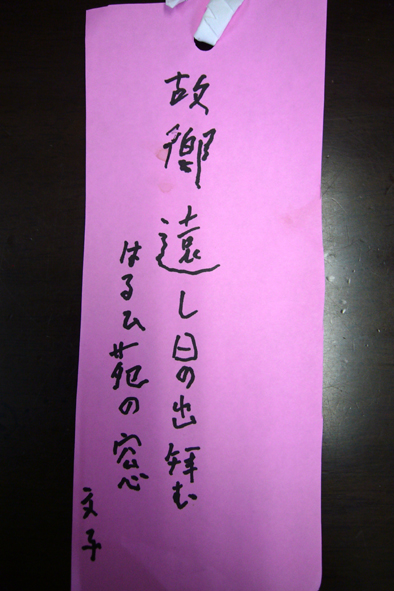 故郷遠し日の出拝む
はるひ苑の窓
文子